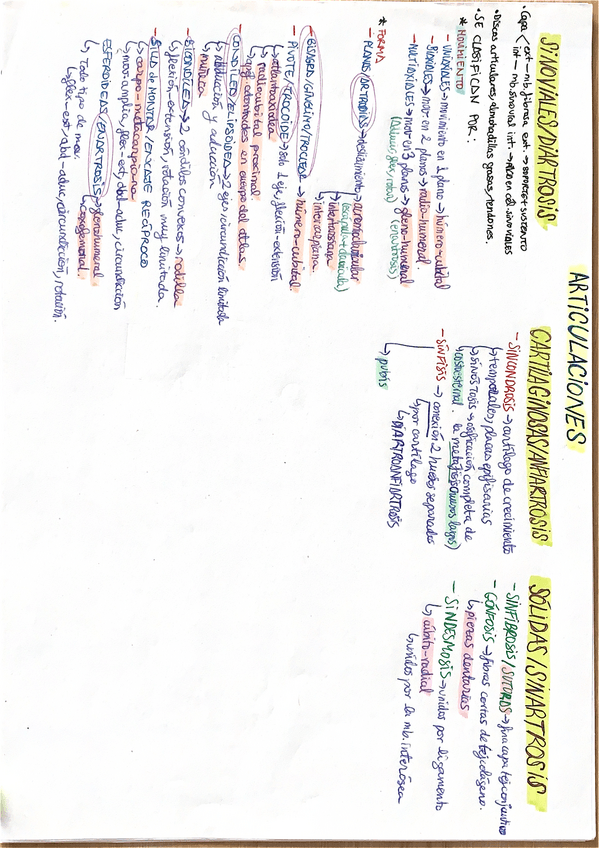 ARTICULACIONES
SINOVIALES/DIARTROSIS
· Capa
ext → mb. fibrosa ext. → soporte + sustento
int → mb. sinovial int. →
· Discos articulares, almohadillas grasas, tendones.
· SE CLASIFICAN POR:
* MOVIMIENTO
- UNIAXIALES → movimiento en 1 plano → húmero-cubital
- BIAXIALES → mov en 2 planos → radio-humeral
- MULTIAXIALES → mov en 3 planos → gleno-humeral
* FORMA
- PLANAS/ARTRODIAS → deslizamiento
acromioclavicular
(escápula + clavícula)
intertarsiana
intercarpiana
- BISAGRA/GÍNGLIMO/TROCLEAR → húmero-cubital
- PIVOTE/TROCOIDE → solo 1 eje, flexión-extensión
↳ atlantoaxoidea
↳ radiocubital proximal
↳ apóf. odontoides en cuerpo del atlas.
- CONDILEA/ELIPSOIDEA → 2 ejes, circundicción limitada
↳ abducción y aducción
↳ muñeca
- BICONDÍLEA → 2 cóndilos convexos → rodilla
↳ flexión-extensión, rotación muy limitada.
- SILLA de MONTAR/ENCAJE RECÍPROCO
↳ carpo-metacarpiana
↳ mov. amplia, flex-ext, abd-aduc, circundicción
ESFEROIDEAS/ENARTROSIS → glenohumeral
↳ coxofemoral
↳ Todo tipo de mov.
↳ flex-ext, abd-aduc, circundicción, rotación.
CARTILAGINOSAS/ANFIARTROSIS
- SINCONDROSIS → cartílago de crecimiento
↳ temporales, placas epifisarias
↳ SINOSTOSIS → osificación completa de
la metáfisis (huesos largos)
↳ costoesternal.
- SÍNFISIS → conexión 2 huesos separados
↳ por cartílago
↳ DIARTROANFIARTROSIS
↳ pubis
SÓLIDAS/SINARTROSIS
- SINFIBROSIS/SUTURAS → fina capa tej. conjuntivo
- GÓNFOSIS → fibras cortas de tej. colágeno.
↳ piezas dentarias
- SINDESMOSIS → unidos por ligamento
↳ cúbito-radial
↳ unidos por la mb. interósea